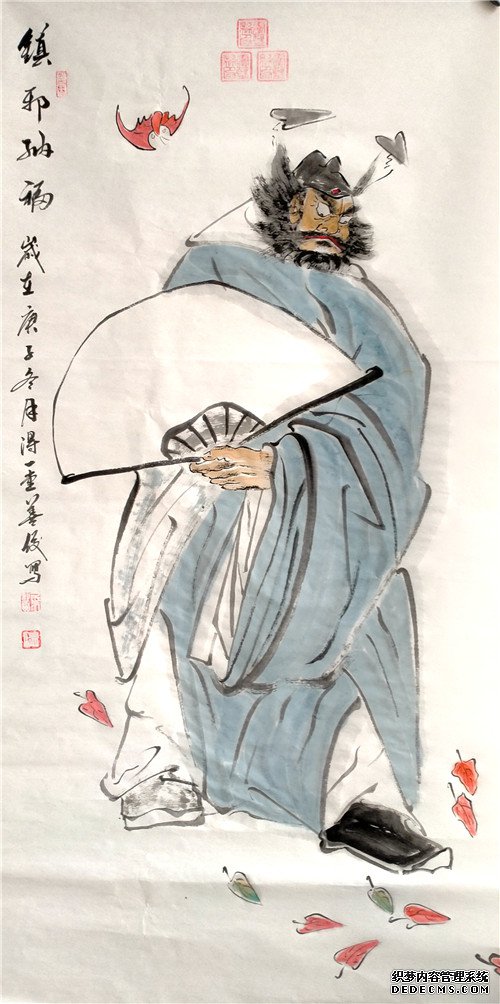 鎮邪納福
歲在庚子冬月得一堂善俊寫
织梦内容管理系统
DEDECMS.COM